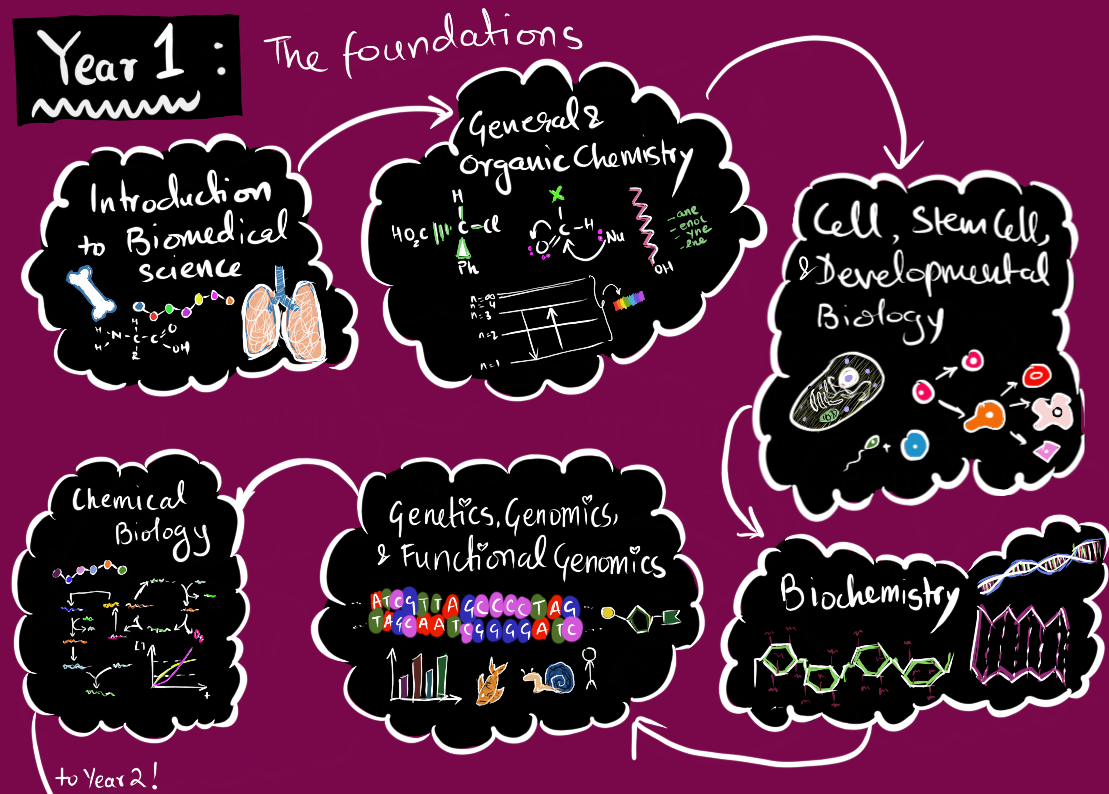 Year 1 :
The foundations
Introduction
to Biomedical
science
H H O
N - C - C
H OH
General &
Organic Chemistry
H
HO₂C C - Cl
Ph
X
C - H
O :Nu
OH
-ane
-enol
-yne
-ene
n=∞
n=4
n=3
n=2
n=1
Cell, Stem Cell,
& Developmental
Biology
Biochemistry
Genetics, Genomics,
& Functional Genomics
ATCGTTAGCCCCTAG
TAGCAATCGGGGATC
Chemical
Biology
t
to Year 2!